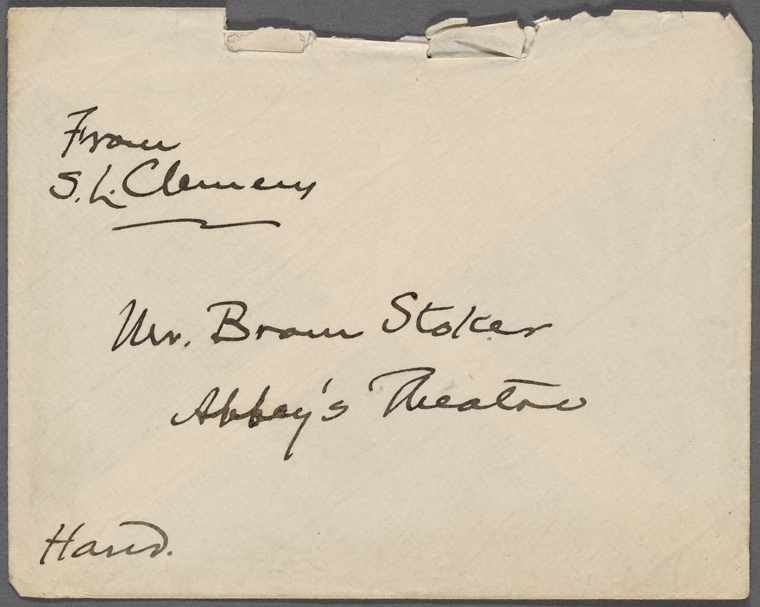 From
S. L. Clemens
Mr. Bram Stoker
Abbey's Theatre
Hand.